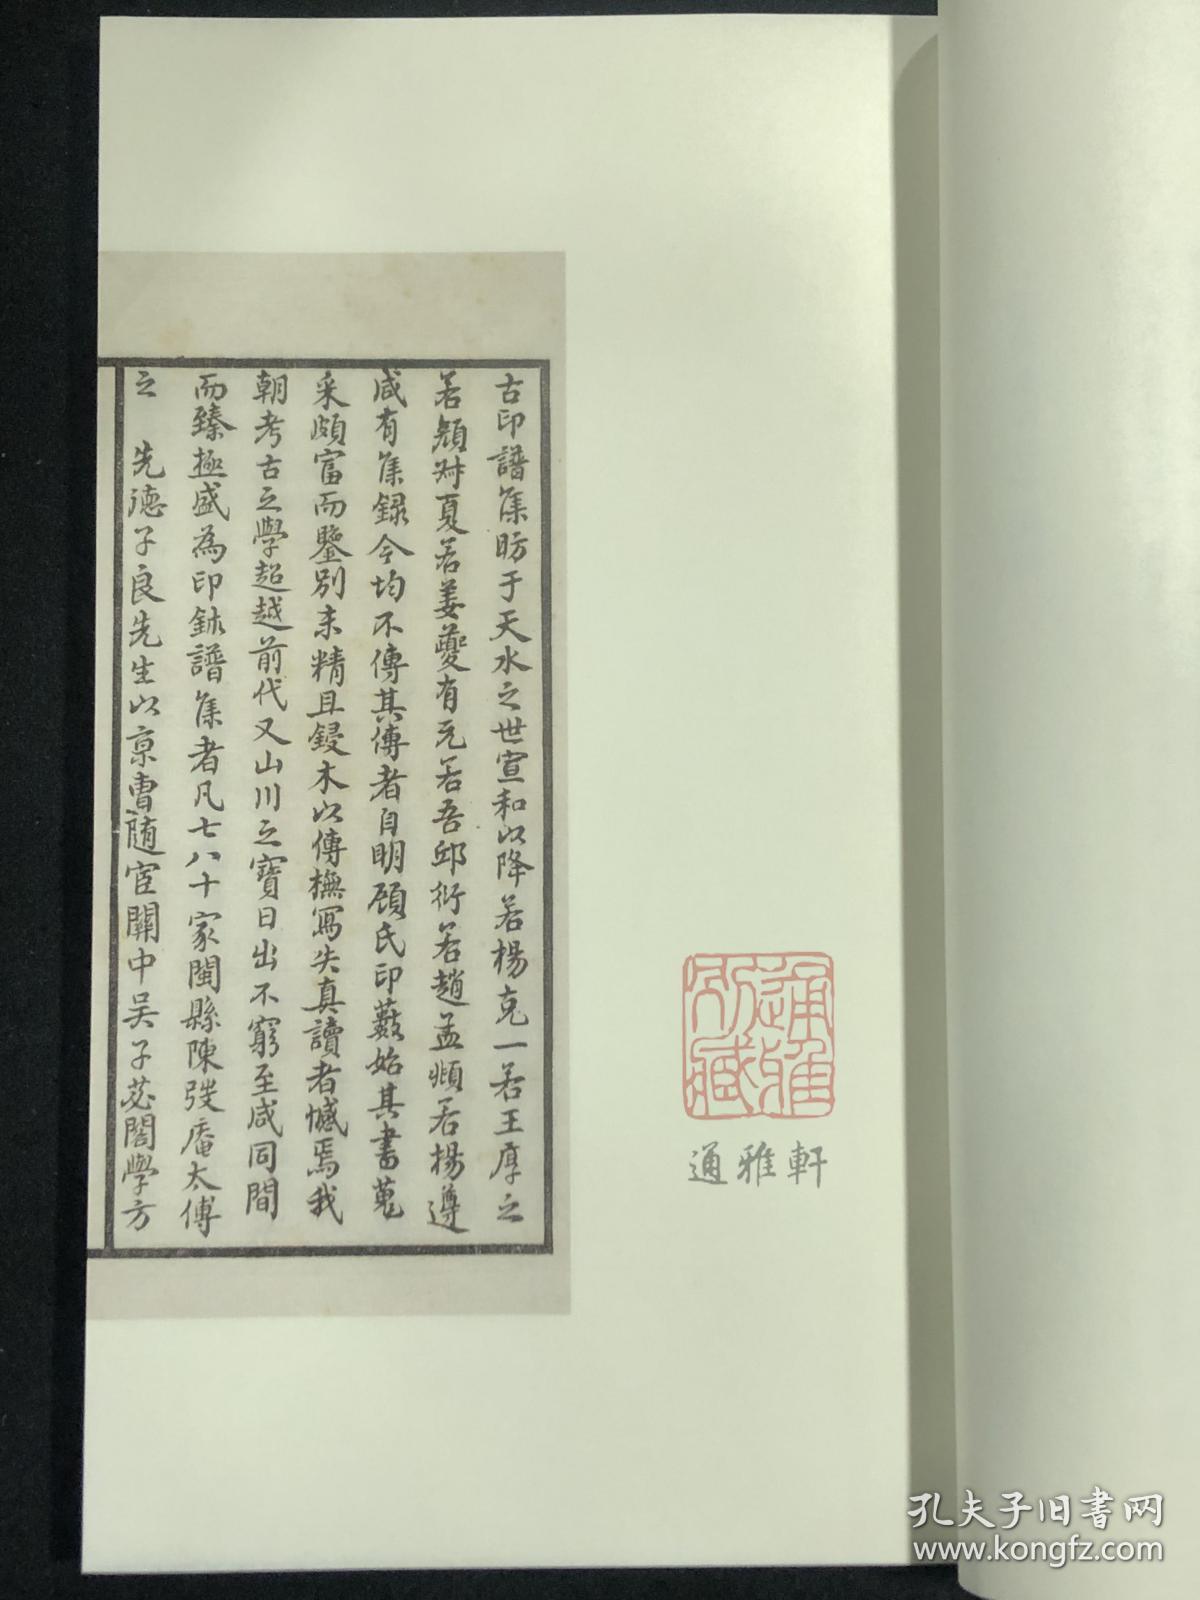 古印譜集昉于天水之世宣和以降若楊克一若王厚之
若顏叔夏若姜夔有元若吾邱衍若趙孟頫若楊遵
咸有集録今均不傳其傳者自明顧氏印藪始其書蒐
采頗富而鑒別未精且鋟木以傳橅寫失真讀者憾焉我
朝考古之學超越前代又山川之寶日出不窮至咸同間
而臻極盛為印鉨譜集者凡七八十家閩縣陳弢庵太傅
之 先德子良先生以京曹随宦關中吴子苾閣學方
通雅所藏
通雅軒
孔夫子旧书网
www.kongfz.com